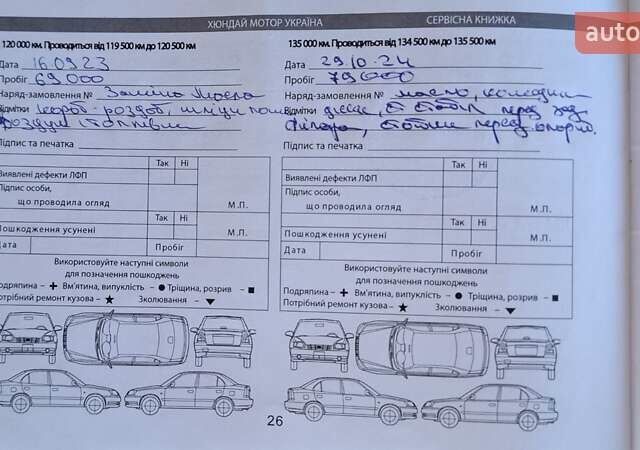 ХЮНДАЙ МОТОР УКРАЇНА
СЕРВІСНА КНИЖКА
auto
120 000 км. Проводиться від 119 500 км до 120 500 км
Дата 16 09 23
Пробіг 69000
Наряд-замовлення № Заміна масла
Відмітки
Підпис та печатка
Так Ні
Виявлені дефекти ЛФП
Підпис особи,
що проводила огляд М.П.
Так Ні
Пошкодження усунені М.П.
Дата Пробіг
Використовуйте наступні символи
для позначення пошкоджень
Подряпина – + Вм'ятина, випуклість – ● Тріщина, розрив – ■
Потрібний ремонт кузова – ★ Зколювання – ▼
135 000 км. Проводиться від 134 500 км до 135 500 км
Дата 29 10. 24
Пробіг 79000
Наряд-замовлення № масло, колодки
Відмітки перед зад
перед
Підпис та печатка
Так Ні
Виявлені дефекти ЛФП
Підпис особи,
що проводила огляд М.П.
Так Ні
Пошкодження усунені М.П.
Дата Пробіг
Використовуйте наступні символи
для позначення пошкоджень
Подряпина – + Вм'ятина, випуклість – ● Тріщина, розрив – ■
Потрібний ремонт кузова – ★ Зколювання – ▼
26